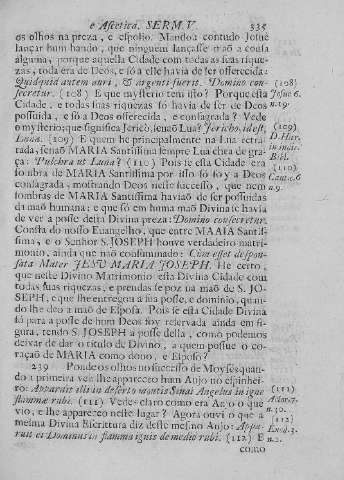 e Ascetica. SERM. V. 335
os olhos na preza, e espolio. Mandou contudo Josue
lançar hum bando, que ninguem lançasse maõ a cousa
alguma, porque aquella Cidade com todas as suas rique-
zas, toda era de Deos, e só a elle havia de ser offerecida:
Quidquid autem auri, & argenti fuerit, Domino con- (108)
secretur. (108) E que mysterio tem isso? Porque esta Josue 6.
Cidade, e todas suas riquezas só havia de ser de Deos n.19.
possuida, e só a Deos offerecida, e consagrada? Vede
o mysterio; que significa Jericò, senaõ Lua? Jericho, id est, (109)
Luna. (109) E quem he principalmente na Lua retra- D. Hier.
tada, senaõ MARIA Santissima sempre Lua chea de gra- in nom.
ça: Pulchra ut Luna? (110) Pois se esta Cidade era Bibl.
sombra de MARIA Santissima por isso só foy a Deos (110)
consagrada, mostrando Deos neste successo, que nem Cant. 6
sombras de MARIA Santissima haviaõ de ser possuidas n.9.
da maõ humana; e que só em huma maõ Divina se havia
de ver a posse desta Divina preza: Domino consecretur.
Consta do nosso Euangelho, que entre MAAIA Santissi-
ma, e o Senhor S. JOSEPH houve verdadeiro matri-
monio, ainda que naõ consummado: Cum esset despon-
sata Mater JESU MARIA JOSEPH. He certo,
que neste Divino Matrimonio esta Divina Cidade com
todas suas riquezas, e prendas se poz na maõ de S. JO-
SEPH, e que lhe entregou a sua posse, e dominio, quan-
do lhe deo a maõ de Esposa. Pois se esta Cidade Divina
só para a posse de hum Deos foy reservada ainda em si-
gura, tendo S. JOSEPH a posse della, como podemos
deixar de dar o titulo de Divino, a quem possue o co-
raçaõ de MARIA como dono, e Esposo?
239 Ponde os olhos no successo de Moyses quan-
do a primeira vez lhe appareceo hum Anjo no espinhei-
ro: Apparuit illi in deserto montis Sinai Angelus in igne (111)
flammæ rubi. (111) Vedes claro como era Anjo o que Actor. 7.
vio, e lhe appareceo neste lugar? Agora ouvi o que a n.30.
mesma Divina Escritura diz desse mesmo Anjo: Appa- (112)
ruit ei Dominus in flamma ignis de medio rubi. (112) E Exod. 3.
n.2.
como